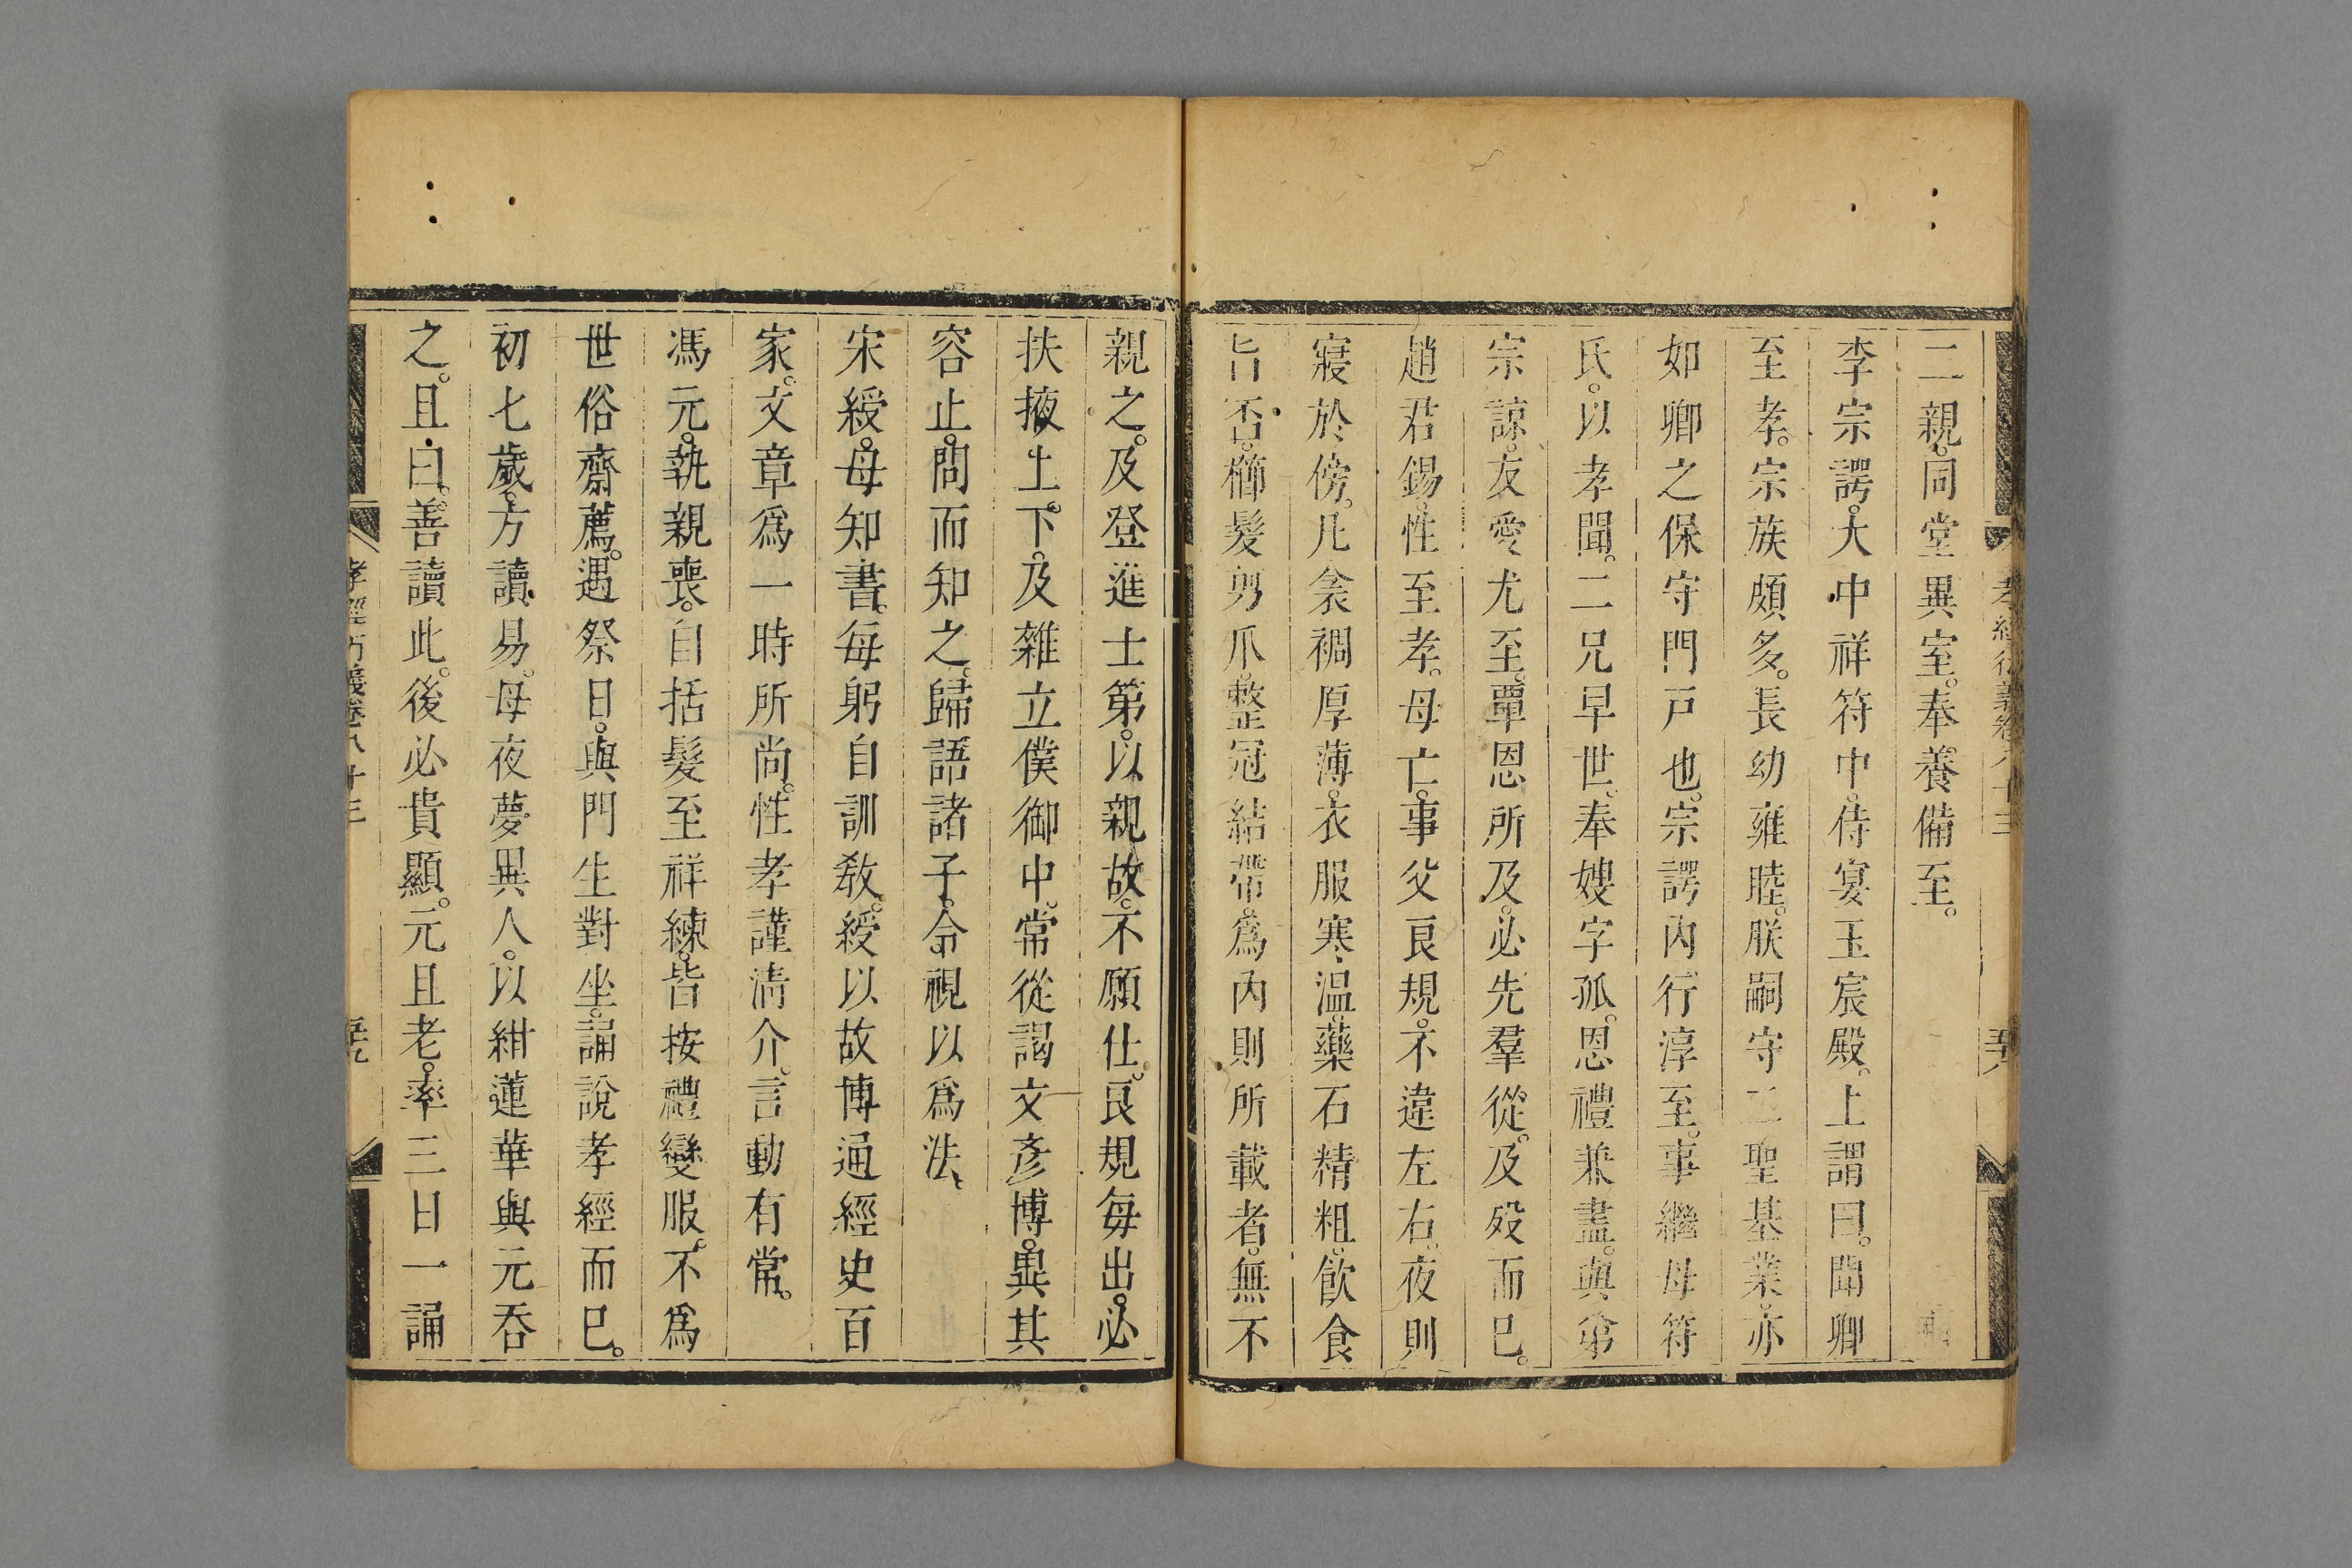 孝經衍義卷八十三
二親。同堂異室。奉養備至。
李宗諤。大中祥符中。侍宴玉宸殿。上謂曰。聞卿
至孝。宗族頗多。長幼雍睦。朕嗣守二聖基業。亦
如卿之保守門戸也。宗諤内行淳至。事繼母符
氏。以孝聞。二兄早世。奉嫂字孤。恩禮兼盡。與弟
宗諒。友愛尤至。覃恩所及。必先羣從。及歿而已。
趙君錫。性至孝。母亡。事父良規。不違左右。夜則
寢於傍。凡衾裯厚薄。衣服寒温。藥石精粗。飲食
旨否。櫛髮剪爪。整冠結帶。爲内則所載者。無不
親之。及登進士第。以親故。不願仕。良規每出。必
扶掖上下。及雜立僕御中。常從謁文彥博。異其
容止。問而知之。歸語諸子。令視以爲法。
宋綬。母知書。每躬自訓敎。綬以故博通經史百
家。文章爲一時所尚。性孝謹淸介。言動有常。
馮元。執親喪。自括髮至祥練。皆按禮變服。不爲
世俗齋薦。遇祭日。與門生對坐。誦說孝經而已。
初七歲。方讀易。母夜夢異人。以紺蓮華與元吞
之。且曰。善讀此。後必貴顯。元且老。率三日一誦
孝經衍義卷八十三